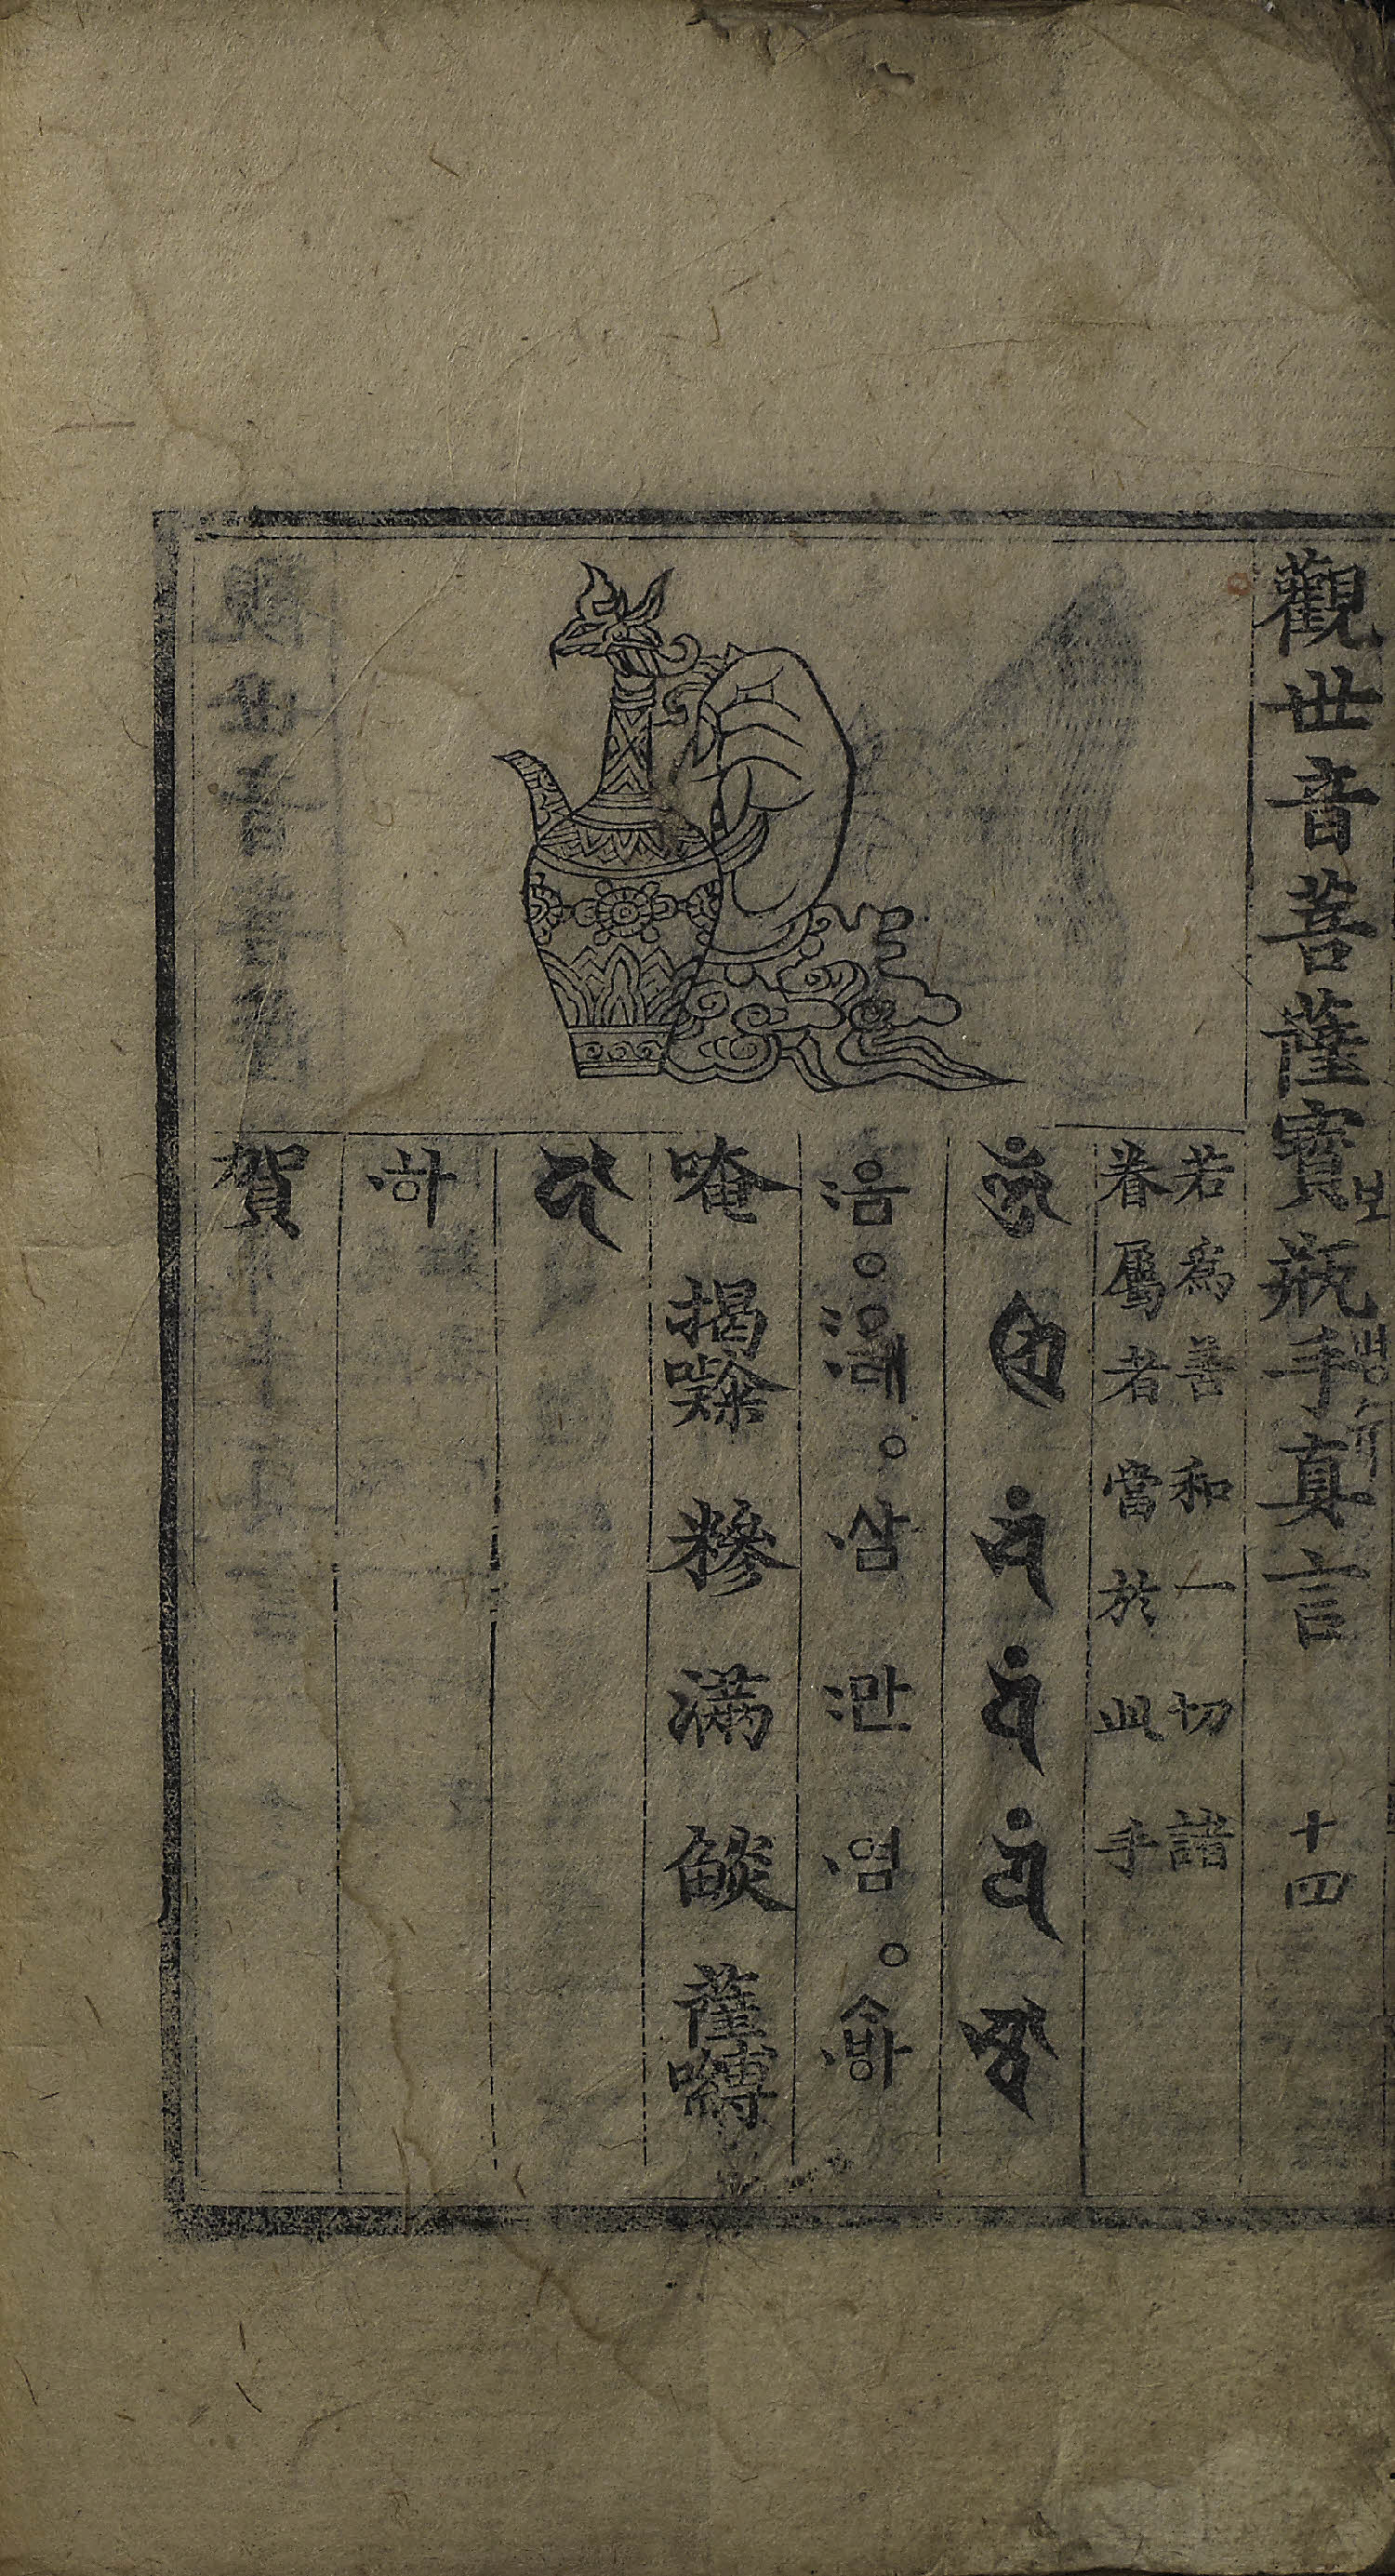 觀世音菩薩寶瓶手眞言 十四
보병슈
若爲善和一切諸
眷屬者當於此手
옴。으례。삼만염。스바
唵揭㘑糝滿燄薩嚩
하
賀